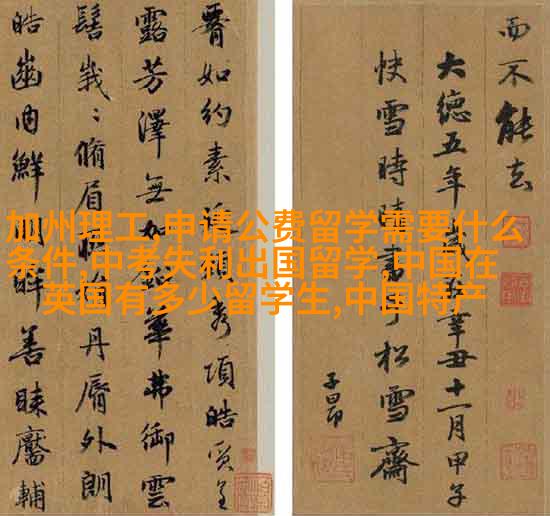 加州理工,申请公费留学需要什么
条件,中考失利出国留学,中国在
英国有多少留学生,中国特产
而不能去
大德五年歲在辛丑十一月甲子
快雪時晴書于松雪齋
子昂
如約素延頸秀項皓質呈
露芳澤無加鉛華弗御雲
髻峩〻脩眉聯娟丹脣外朗
皓齒内鮮明眸善睞靨輔